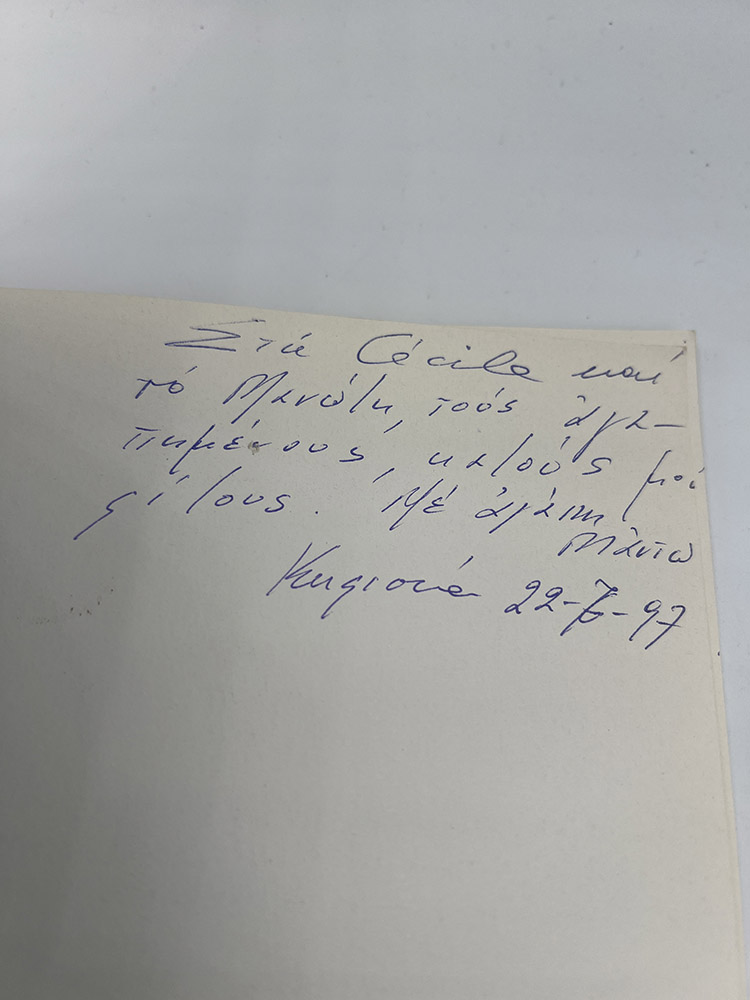 Στή Cécile καί
τό Μανώλη, τούς ἀγα-
πημένους, καλούς μου
φίλους. Μέ ἀγάπη
Μάντω
Κηφισιά 22-7-97